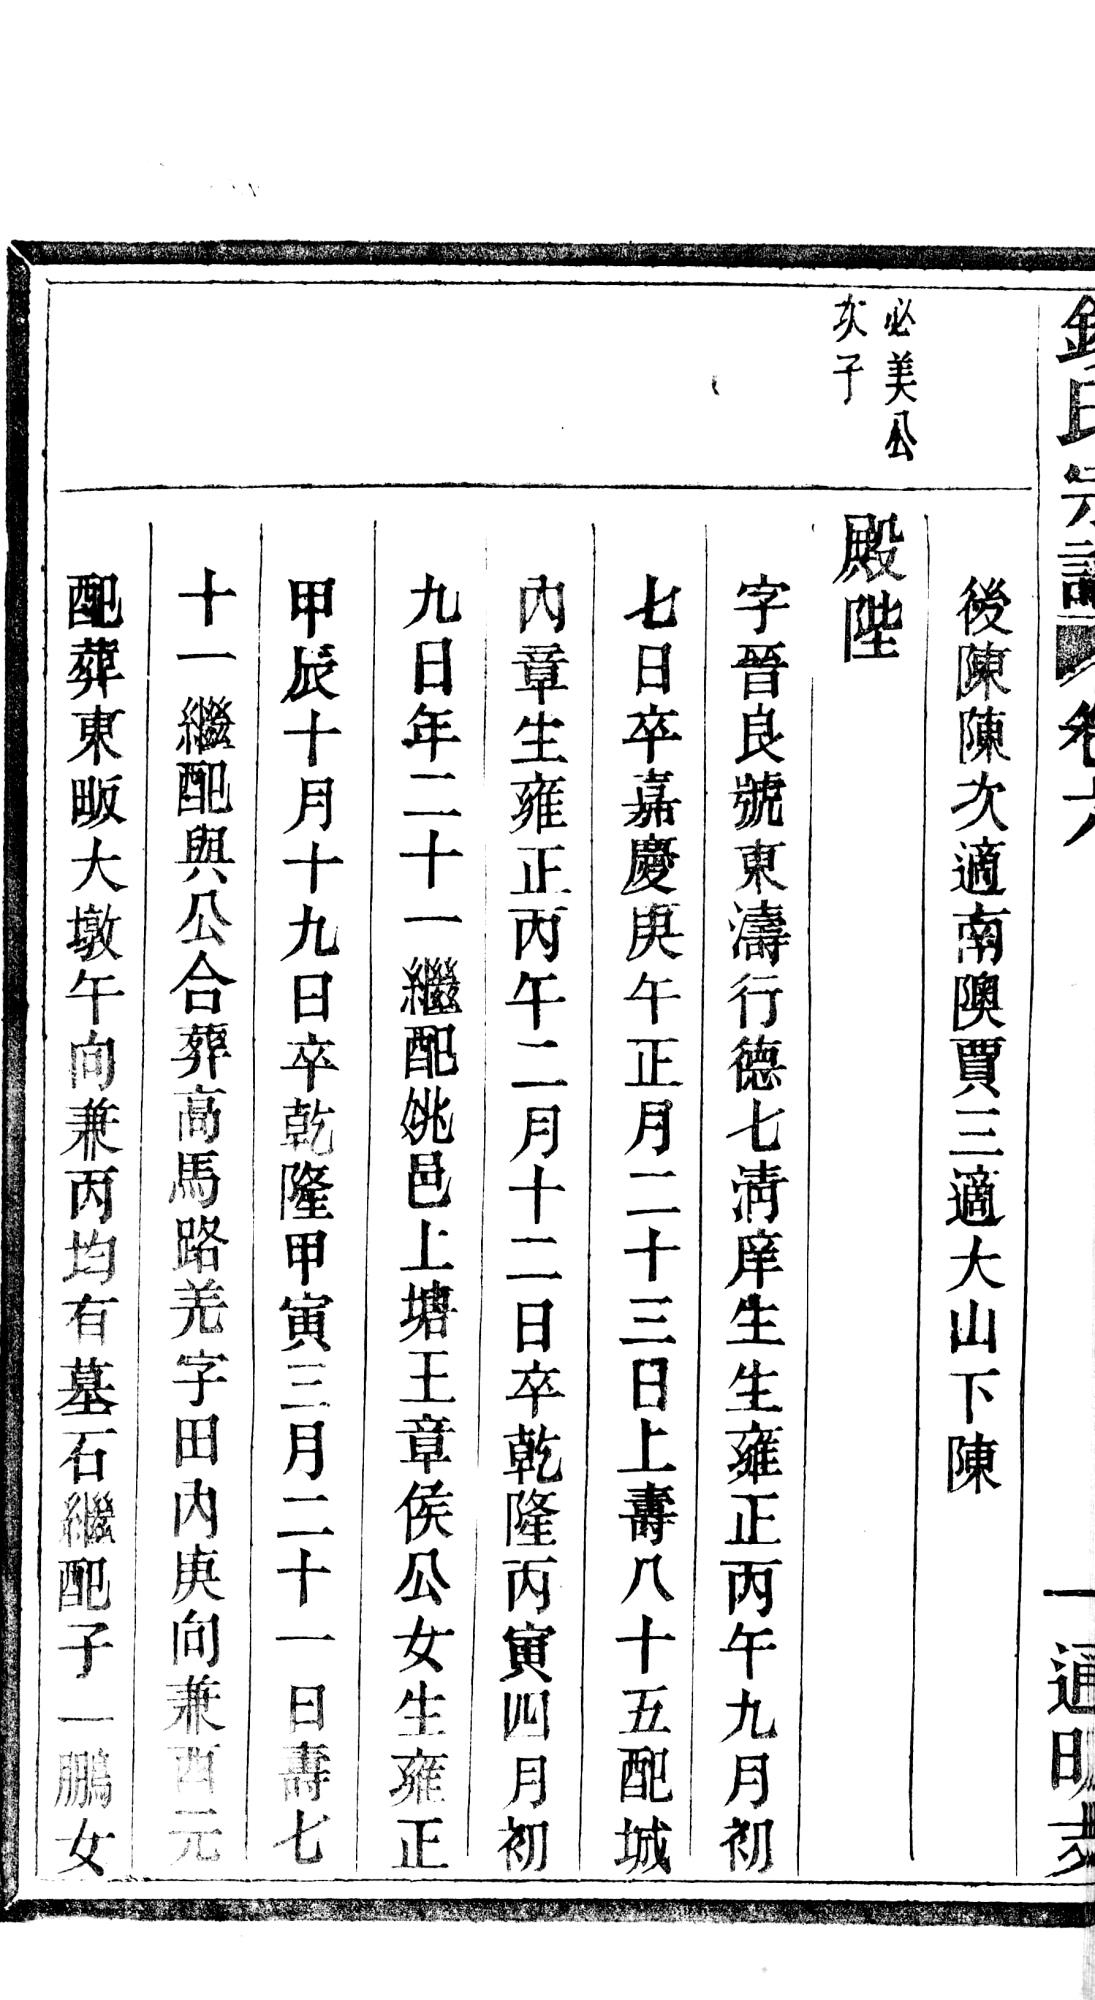 氏宗譜 卷六 一 通明支
後陳陳次適南隩賈三適大山下陳
必美公
次子
殿陛
字晉良號東濤行德七清庠生生雍正丙午九月初
七日卒嘉慶庚午正月二十三日上壽八十五配城
內章生雍正丙午二月十二日卒乾隆丙寅四月初
九日年二十一繼配姚邑上塘王章侯公女生雍正
甲辰十月十九日卒乾隆甲寅三月二十一日壽七
十一繼配與公合葬高馬路羌字田內庚向兼酉元
配葬東畈大墩午向兼丙均有墓石繼配子一鵬女